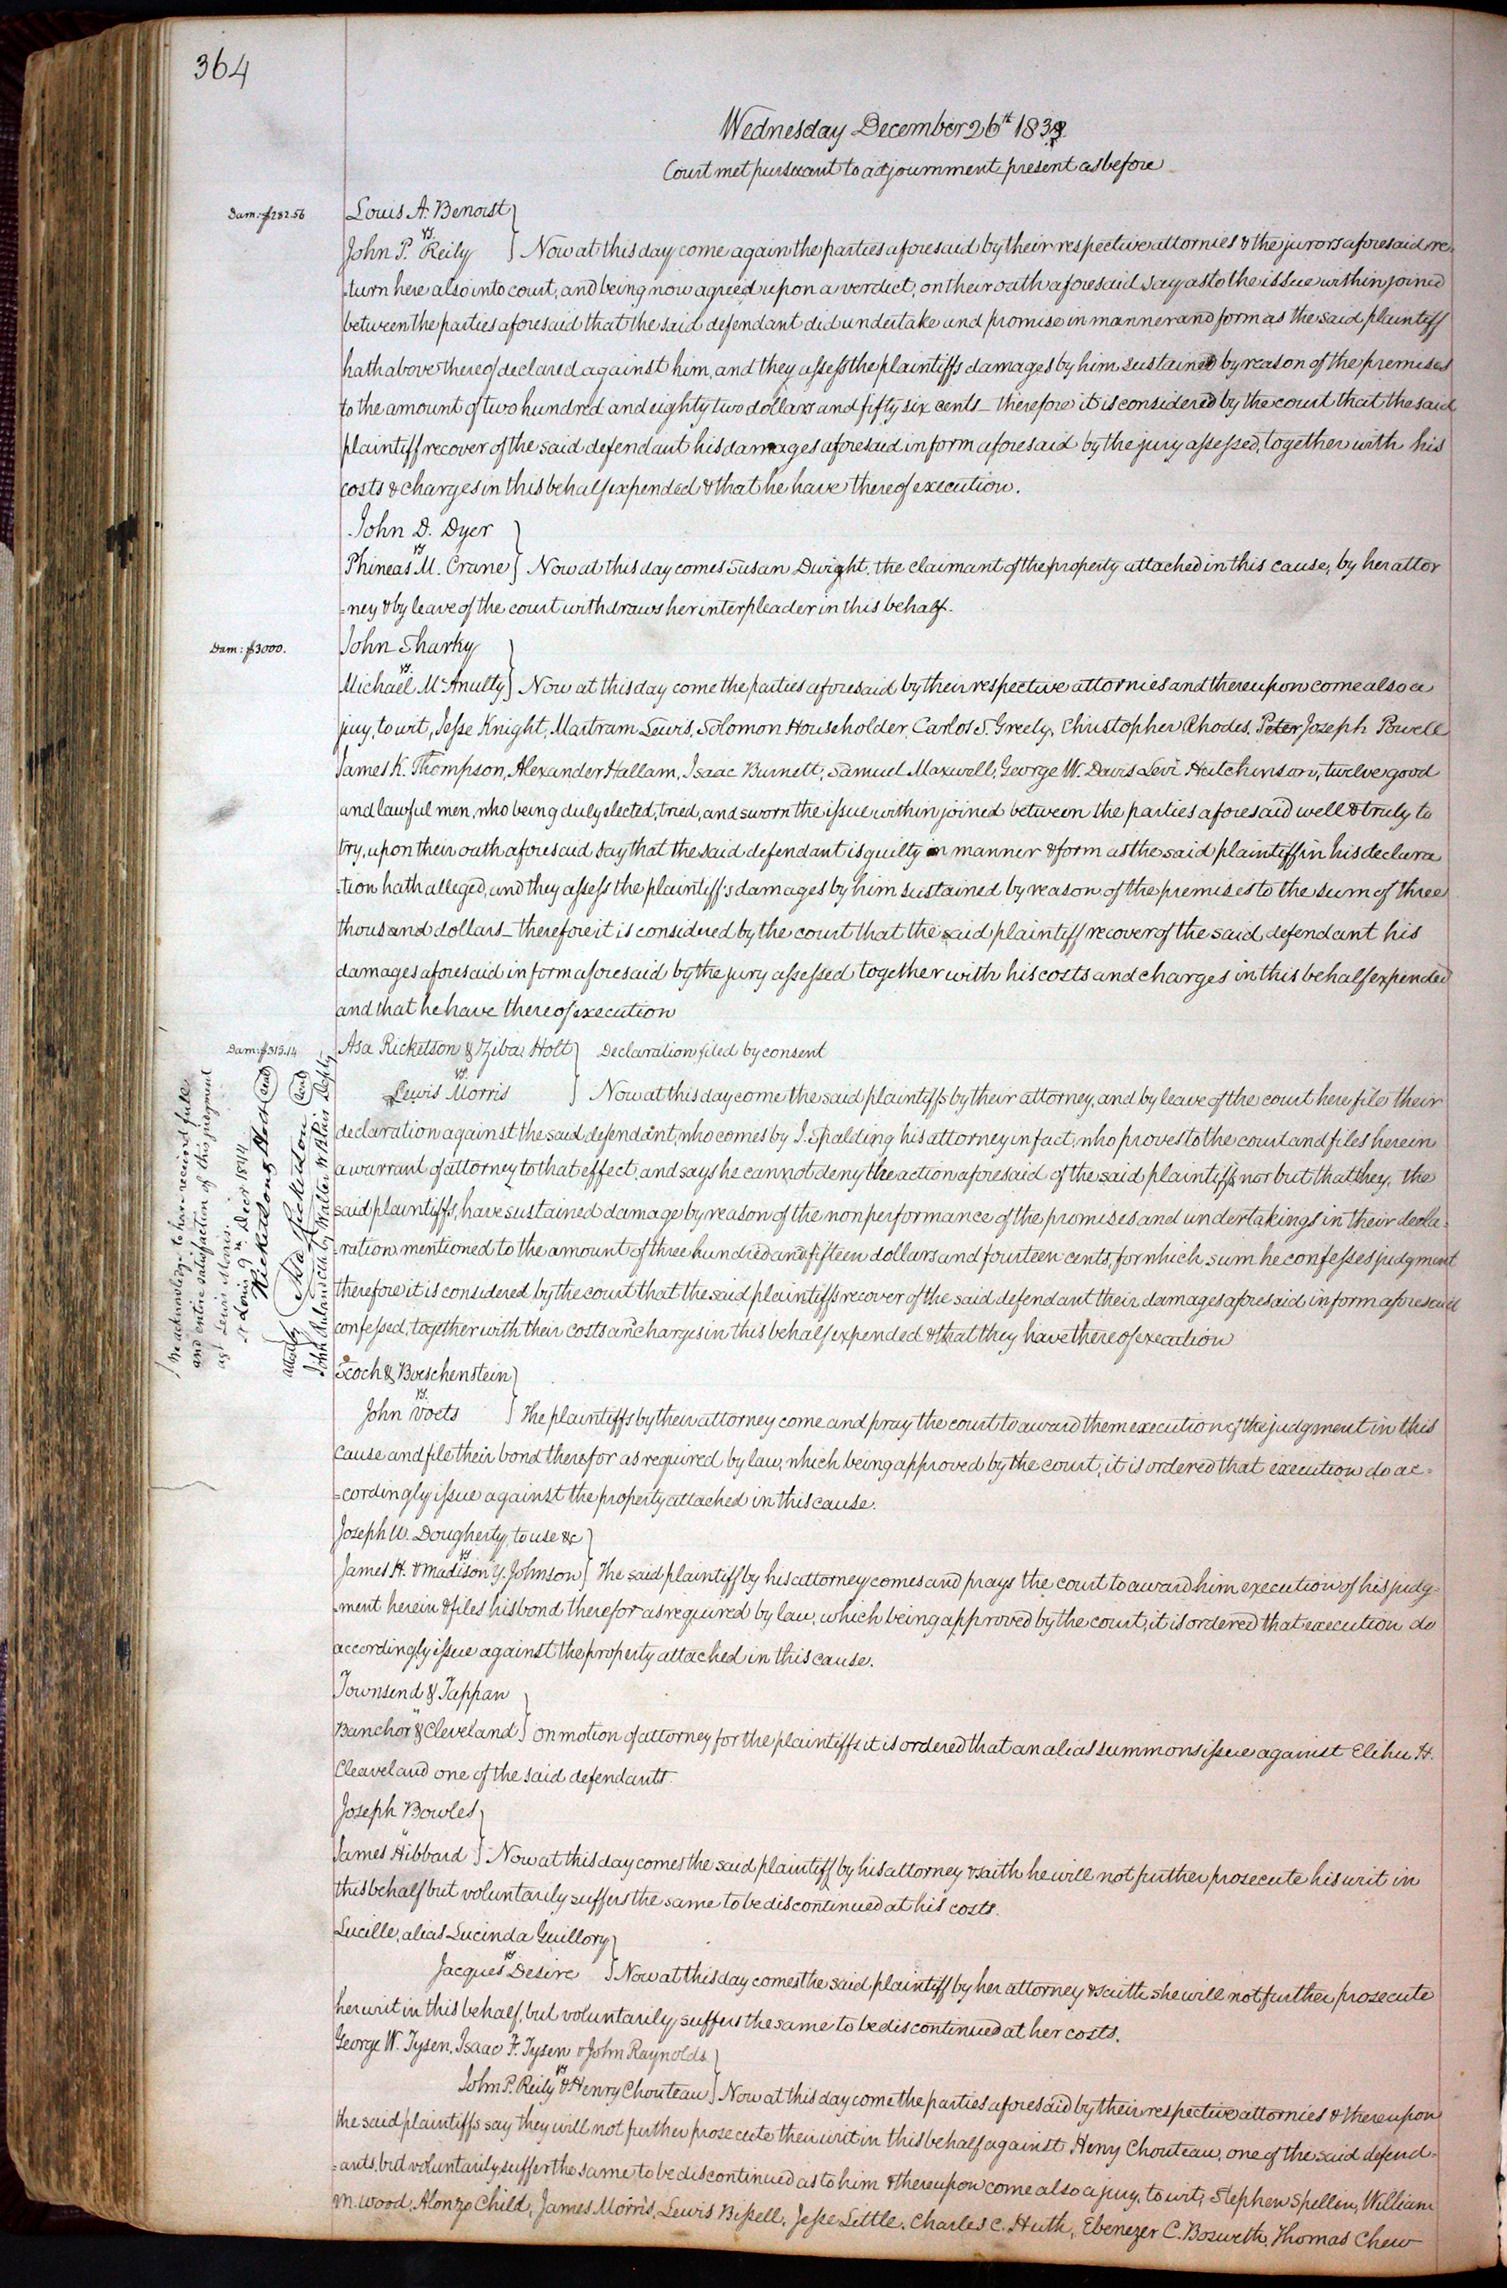 364
Wednesday December 26th 1838.
Court met pursuant to adjournment present as before
Dam: $282.56
Louis A. Benoist
vs.
John P. Reily } Now at this day come again the parties aforesaid by their respective attornies & the jurors aforesaid re-
-turn here also into court, and being now agreed upon a verdict, on their oath aforesaid say as to the issue within joined
between the parties aforesaid that the said defendant did undertake and promise in manner and form as the said plaintiff
hath above thereof declared against him, and they assess the plaintiffs damages by him sustained by reason of the premises
to the amount of two hundred and eighty two dollars and fifty six cents_ therefore it is considered by the court that the said
plaintiff recover of the said defendant his damages aforesaid in form aforesaid by the jury assessed, together with his
costs & charges in this behalf expended & that he have thereof execution.
John D. Dyer
vs
Phineas M. Crane } Now at this day comes Susan Dwight, the claimant of the property attached in this cause, by her attor
-ney & by leave of the court withdraws her interpleader in this behalf.
Dam: $3000.
John Sharky
vs.
Michael McAnulty } Now at this day come the parties aforesaid by their respective attornies and thereupon come also a
jury, to wit, Jesse Knight, Martram Lewis, Solomon Householder, Carlos S. Greely, Christopher Rhodes, Peter Joseph Powell
James K. Thompson, Alexander Hallam, Isaac Burnett, Samuel Maxwell, George W. Davis Levi Hutchinson, twelve good
and lawful men, who being duly elected, tried, and sworn the issue within joined between the parties aforesaid well & truly to
try, upon their oath aforesaid say that the said defendant is guilty in manner & form as the said plaintiff in his declara
-tion hath alleged, and they assess the plaintiff's damages by him sustained by reason of the premises to the sum of three
thousand dollars_ therefore it is considered by the court that the said plaintiff recover of the said defendant his
damages aforesaid in form aforesaid by the jury assessed together with his costs and charges in this behalf expended
and that he have thereof execution
Dam: $315.14
Asa Ricketson & Ziba Holt } Declaration filed by consent
vs.
Lewis Morris } Now at this day come the said plaintiffs by their attorney, and by leave of the court here file their
declaration against the said defendant, who comes by J. Spalding his attorney in fact, who proves to the court and files herein
a warrant of attorney to that effect, and says he cannot deny the action aforesaid of the said plaintiffs nor but that they, the
said plaintiffs, have sustained damage by reason of the non performance of the promises and undertakings in their decla-
-ration mentioned to the amount of three hundred and fifteen dollars and fourteen cents, for which sum he confesses judgment
therefore it is considered by the court that the said plaintiffs recover of the said defendant their damages aforesaid in form aforesaid
confessed, together with their costs and charges in this behalf expended & that they have thereof execution
We acknowledge to have received full
and entire satisfaction of this judgment
agt Lewis Morris.
St Louis 9th Decr 1844
Asa Ricketson (seal)
attest
John Ruland clk by Walter W Blair Depty
Scoch & Boeschenstein
vs.
John Voets } The plaintiffs by their attorney come and pray the court to award them execution of the judgment in this
cause and file their bond therefor as required by law, which being approved by the court, it is ordered that execution do ac-
-cordingly issue against the property attached in this cause.
Joseph W. Dougherty, to use &c
vs
James H. & Madison Y. Johnson } The said plaintiff by his attorney comes and prays the court to award him execution of his judg-
-ment herein & files his bond therefor as required by law, which being approved by the court, it is ordered that execution do
accordingly issue against the property attached in this cause.
Townsend & Tappan
"
Banchor & Cleveland } On motion of attorney for the plaintiffs it is ordered that an alias summons issue against Elihu H.
Cleaveland one of the said defendants.
Joseph Bowles
"
James Hibbard } Now at this day comes the said plaintiff by his attorney & saith he will not further prosecute his writ in
this behalf but voluntarily suffers the same to be discontinued at his costs.
Lucille, alias Lucinda Guillory
vs
Jacques Desire } Now at this day comes the said plaintiff by her attorney & saith she will not further prosecute
her writ in this behalf, but voluntarily suffers the same to be discontinued at her costs.
George W. Tysen, Isaac F. Tysen & John Raynolds
vs
John P. Reily & Henry Chouteau } Now at this day come the parties aforesaid by their respective attornies & thereupon
the said plaintiffs say they will not further prosecute their writ in this behalf against Henry Chouteau, one of the said defend-
-ants, but voluntarily suffer the same to be discontinued as to him & thereupon come also a jury, to wit, Stephen Spellin, William
M. Wood, Alonzo Child, James Morris, Lewis Bissell, Jesse Little, Charles C. Huth, Ebenezer C. Bosweth, Thomas Chew